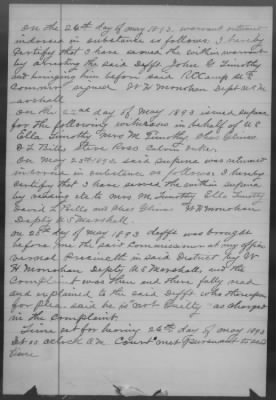 On the 26th day of May 1893, warrant returned
indorsed in substance as follows. I hereby
certify that I have served the within warrant
by arresting the said Defft. John C Timothy
and bringing him before said R C Camp U.S.
Commr signed W H Monahan Depty U.S. M
arshall
On the day of May 1893 issued supena
for the following witnesses in behalf of U.S
Ella Timothy Mrs M Timothy Chas Glines
D L Bills Steve Ross Calvin
On May 25th 1893 said supena was returned
indorsed in substance as follows. I hereby
certify that I have served the within supena
by reading etc to Mrs M Timothy Ella Timothy
David L Bills and Chas Glines W H Monahan
Depty U.S. Marshall.
on 25th day of May 1893 defft was brought
before me the said Commissioner at my office
Vernal Precinct in said District by W
H Monahan Depty U.S Marshall, and the
Complaint was then and there fully read
and explained to the said Defft who thereupon
for plea said he is "not Guilty" as charged
in the Complaint.
Time set for hearing 26th day of May 1893
At 10 oclock A.M. Court met pursuant to said
time